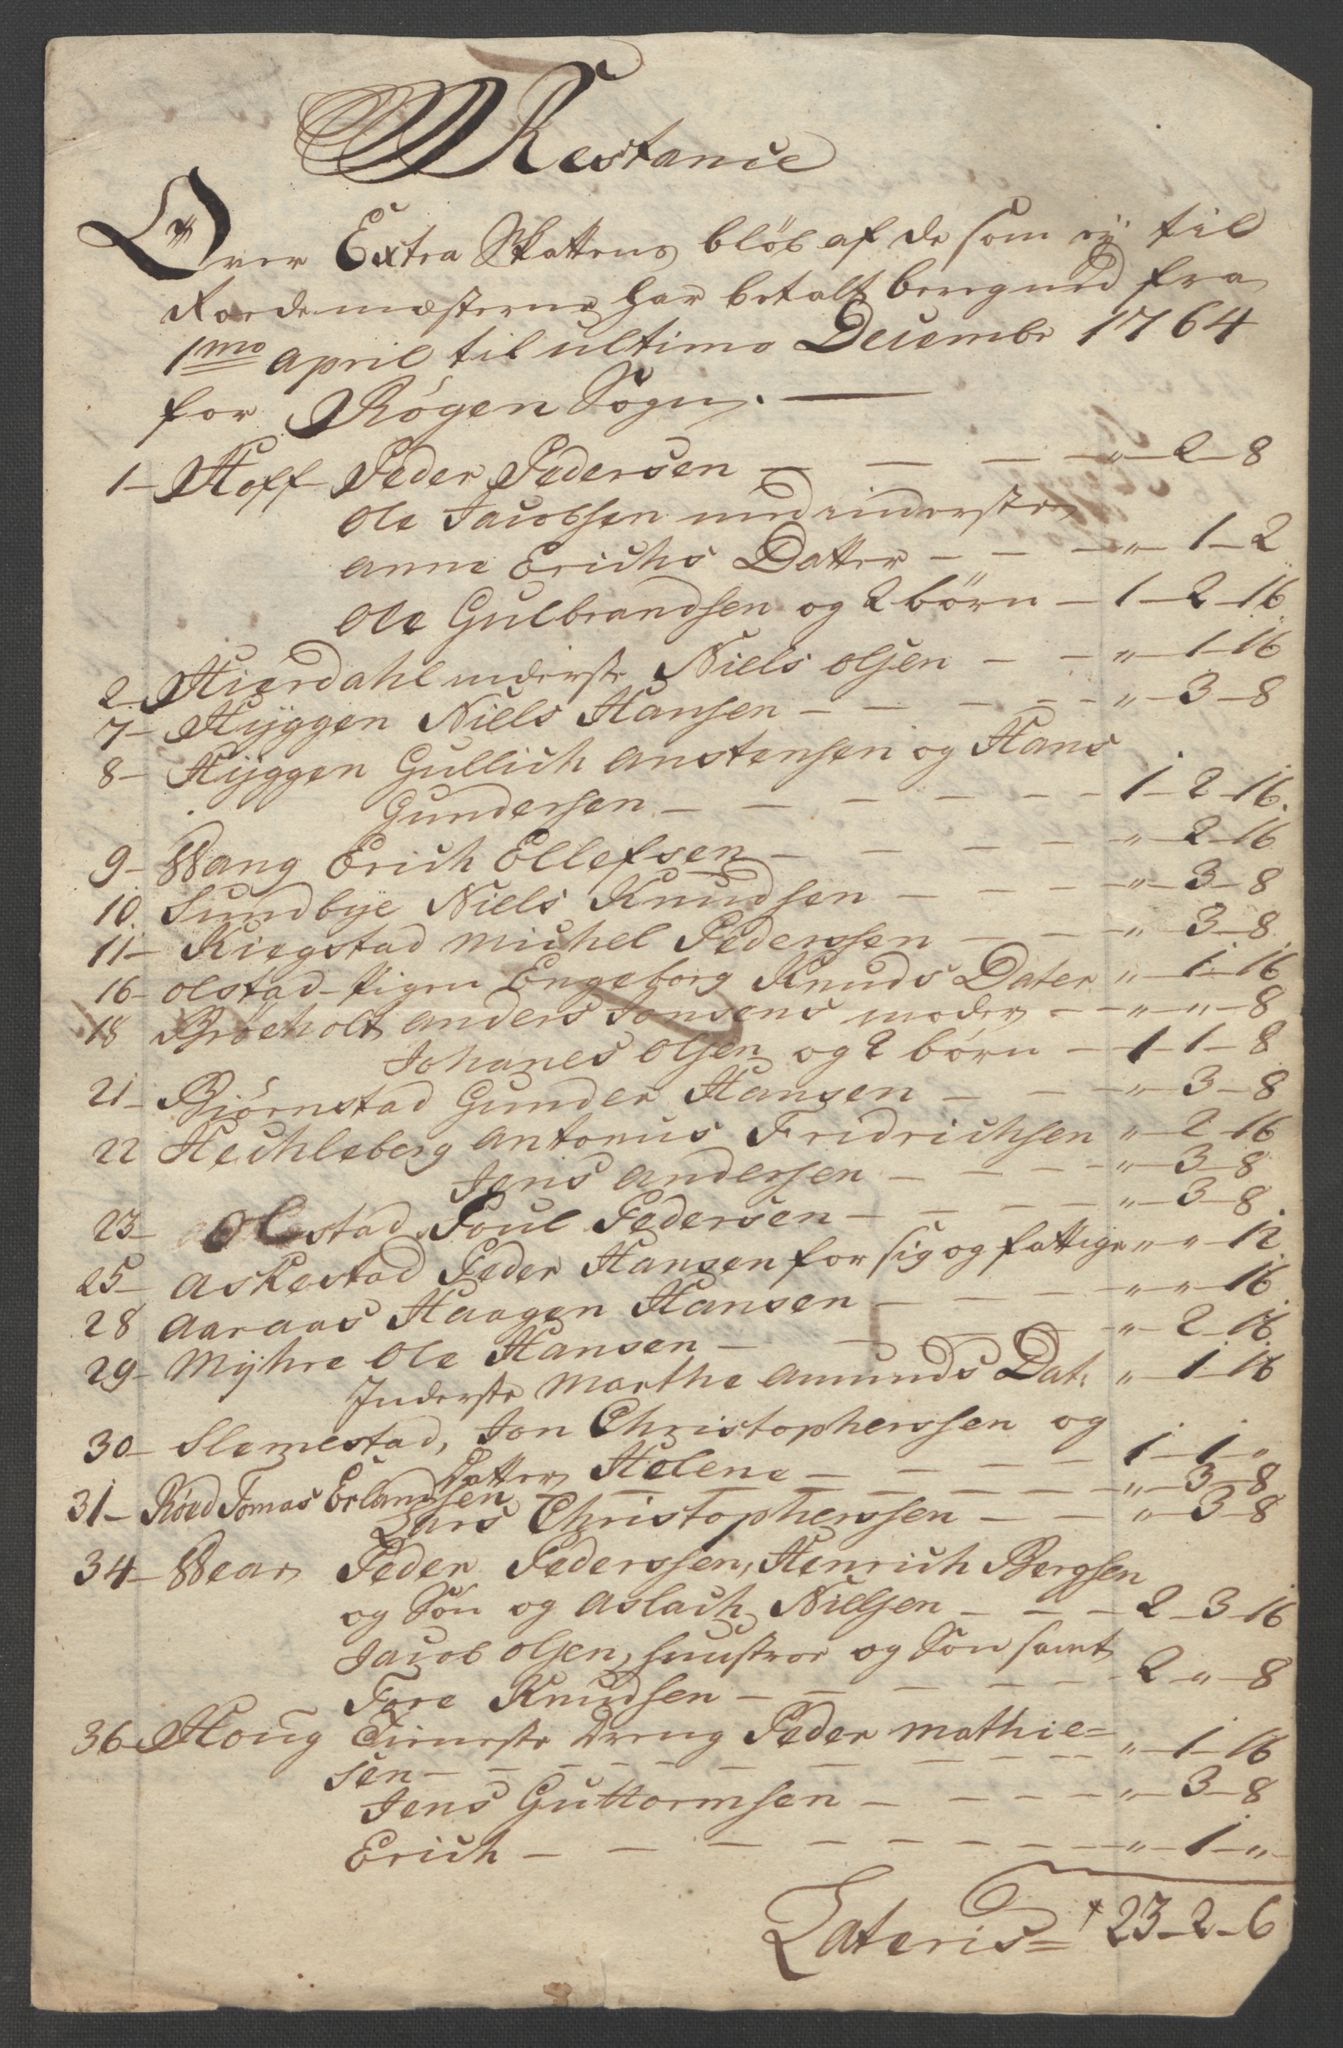 Restance
Over Extra Skattens bløb af de som ej til
Roedemæsterne har betalt beregned fra
1mo april til ultimo Decembr 1764
for Røgen Sogn. —
1 – Hoff Peder Pedersen — — — „ – 2 – 8
Ole Jacobsen med inderste
anne Erichs Datter — — — „ – 1 – 2
Ole Gulbrandsen og 2 börn – 1 – 2 – 16
2 – Hiørdahl inderste Niels olsen — — „ – 1 – 16
7 – Hyggen Niels Hansen — — — „ – 3 – 8
8 – Hyggen Gullich anstensen og Hans
Gundersen — — — — — 1 – 2 – 16
9 – Wang Erich Ellefsen — — — — „ – 2 – 16
10 Sundbye Niels Knudsen — — — „ – 3 – 8
11 – Kiegstad Michel Pederssen — — „ – 3 – 8
16 – olstad pigen Engeborg Knuds Dater „ – 1 – 16
18 Brøeholt anders Jonsens moder — „ – „ – 8
Johanes olsen og 2 börn – 1 – 1 – 8
21 – Biørnstad Gunder Hansen — — — „ – 3 – 8
22 Hechleberg antonus Fridrichsen „ – 2 – 16
Jens andersen — — — — „ – 3 – 8
23 – olstad Poul Pedersen — — — — „ – 3 – 8
25 – askestad Peder Hansen for sig og fattige „ „ 12
28 aaraas Haagen Hansen — — — „ – „ – 16
29 – Mÿhre Ole Hansen — — — „ – 2 – 16
Inderste Marthe amunds Dat: „ – 1 – 16
30 – Slemestad, Jon Christopherssen og
Datter Helene — — — — 1 – 1 – „
31 – Röed Tomas Erlandsen — — — — „ – 3 – 8
Lars Christopherssen — — „ – 3 – 8
34 – Wear Peder Pederssen, Henrich Bergsen
og Sön og Aslach Nielsen — — — 2 – 3 – 16
Jacob olsen, huustroe og Sön samt
Tore Knudsen — — — — — 2 – „ – 8
36 – Houg Tieneste dreng Peder Mathie=
sen — — — — — — „ – 1 – 16
Jens Guttormsen — — — — „ – 3 – 8
Erich — — — — — — — „ – 1 – „
Lateris = 23 – 2 – 6